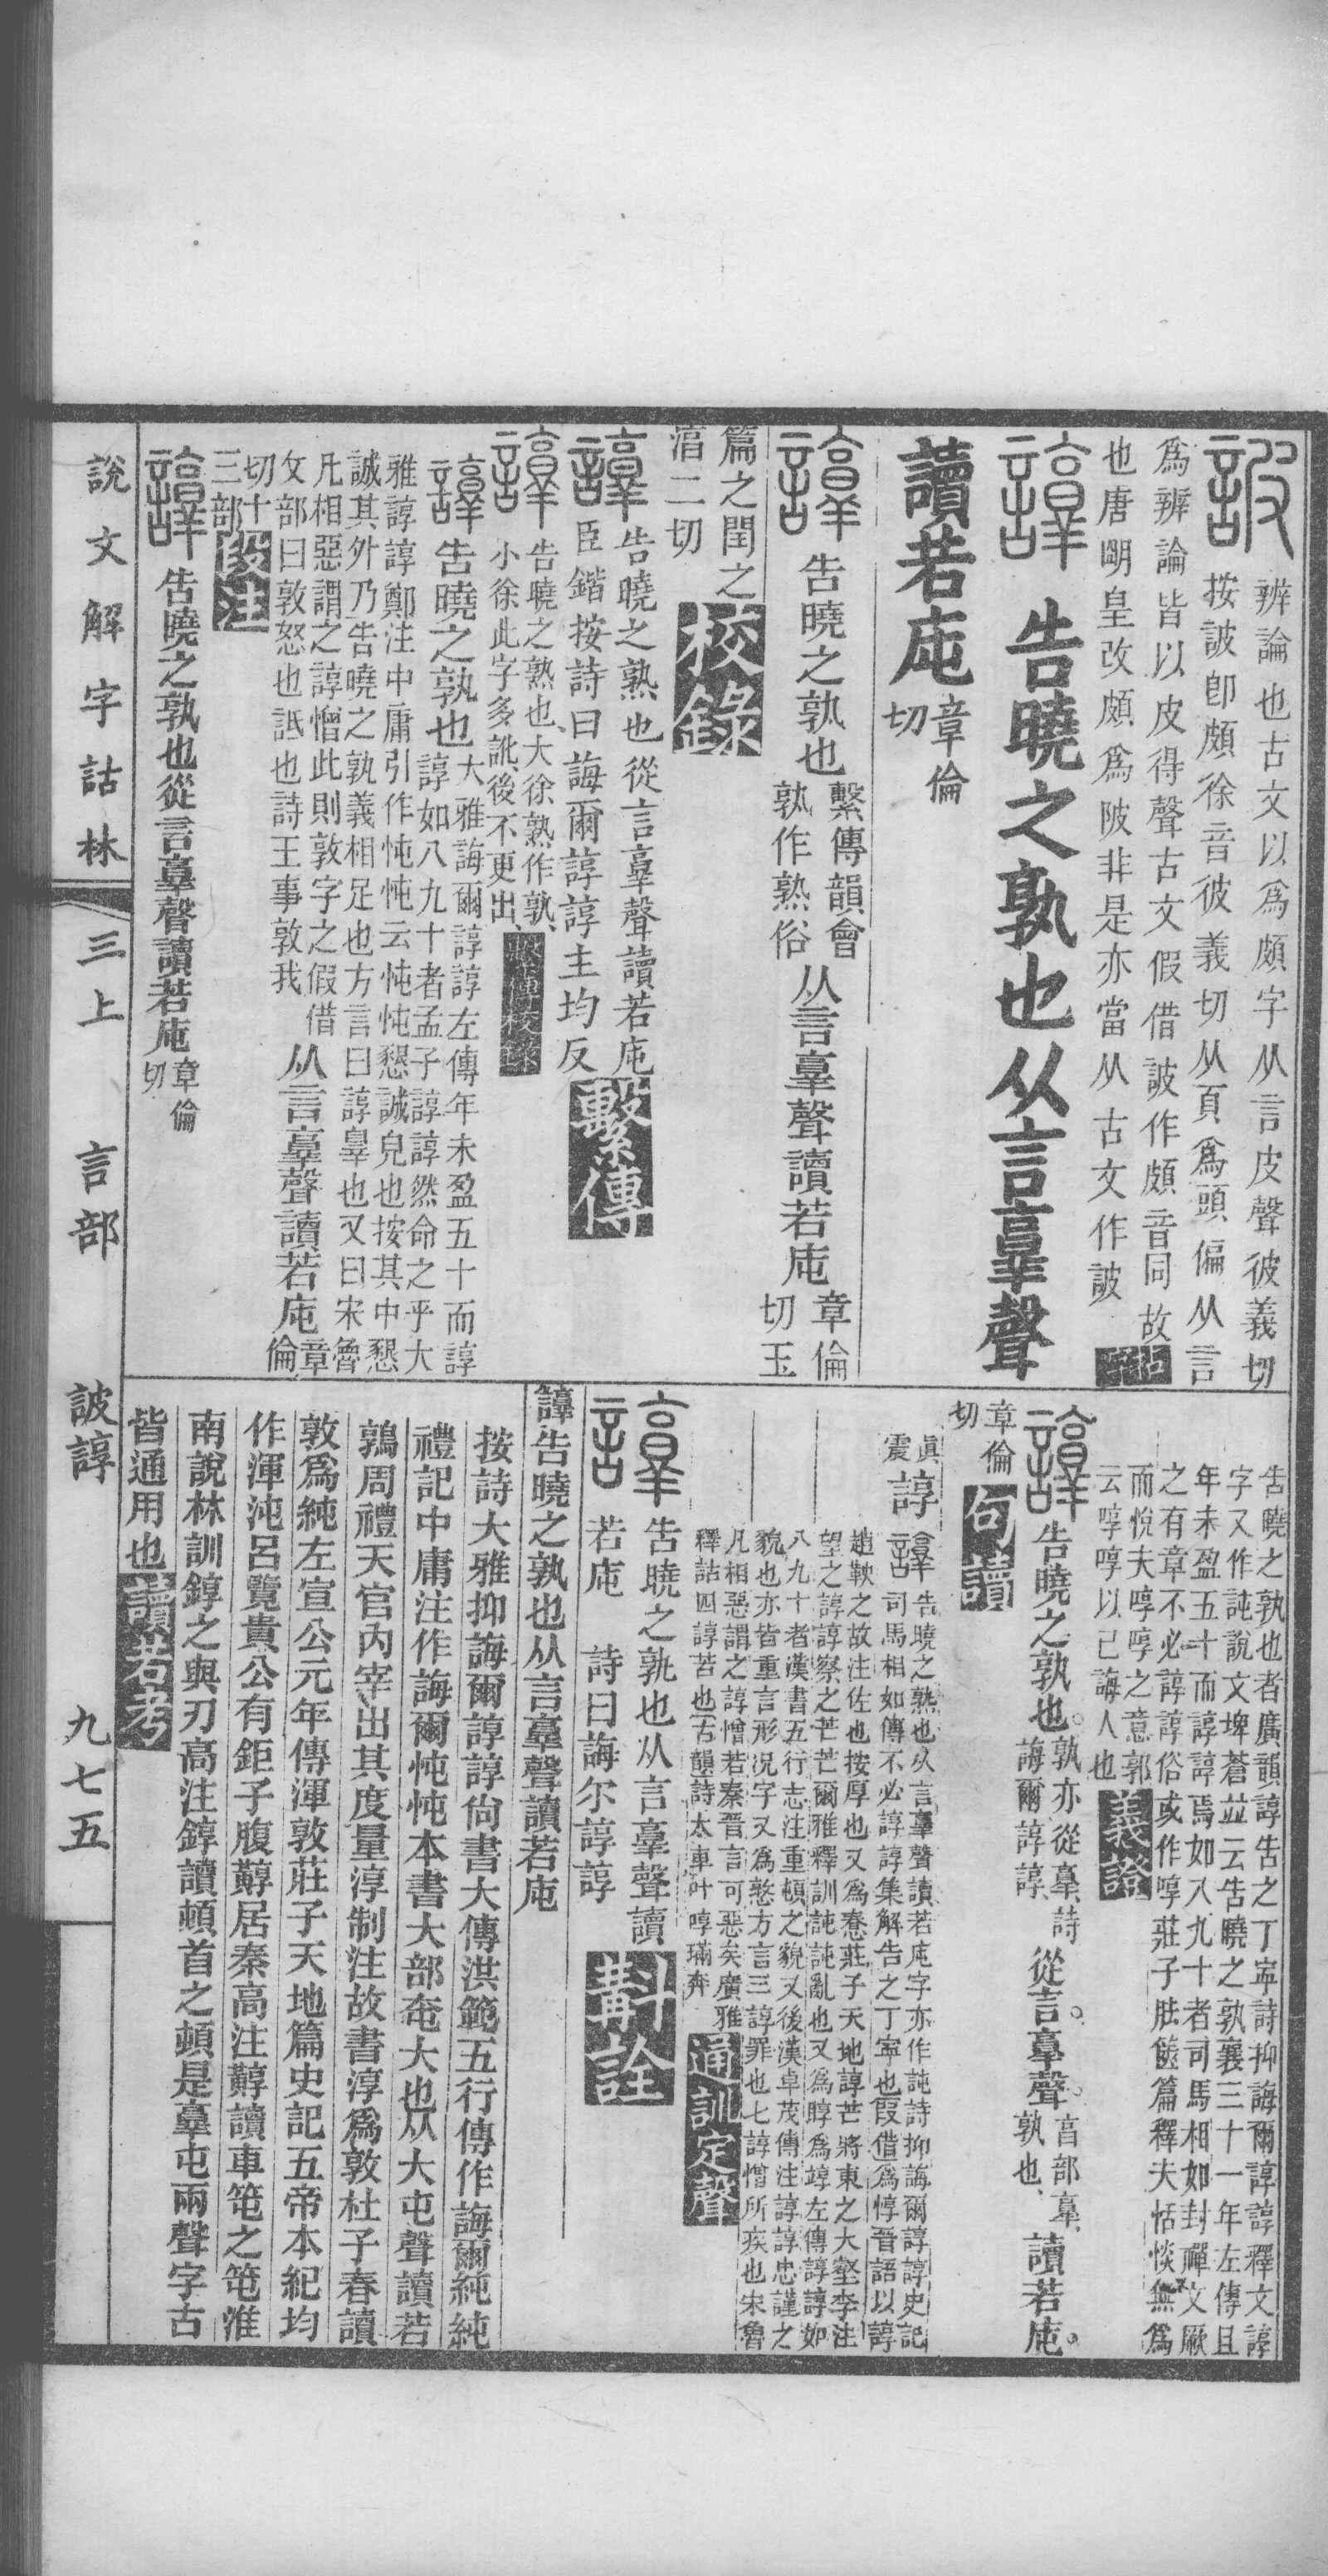 詖
辨論也古文以爲頗字从言皮聲彼義切
按詖卽頗徐音彼義切从頁爲頭偏从言
爲辨論皆以皮得聲古文假借詖作頗音同故
也唐明皇改頗爲陂非是亦當从古文作詖
諄 告曉之孰也从言𦎫聲
讀若庉 章倫
切
諄 告曉之孰也 繫傳韻會
孰作熟俗 从言𦎫聲讀若庉 章倫
切玉
篇之閏之
湻二切 校錄
諄 告曉之熟也從言𦎫聲讀若庉
臣鍇按詩曰誨爾諄諄主均反 繫傳
諄 告曉之熟也大徐熟作孰
小徐此字多訛後不更出 繫傳校錄
諄 告曉之孰也 大雅誨爾諄諄左傳年未盈五十而諄
諄如八九十者孟子諄諄然命之乎大
雅諄諄鄭注中庸引作忳忳云忳忳懇誠皃也按其中懇
誠其外乃告曉之孰義相足也方言曰諄辠也又曰宋魯
凡相惡謂之諄憎此則敦字之假借
攵部曰敦怒也詆也詩王事敦我 从言𦎫聲讀若庉 章
倫
切十
三部 段注
諄 告曉之孰也從言𦎫聲讀若庉 章倫
切
告曉之孰也者廣韻諄告之丁寧詩抑誨爾諄諄釋文諄
字又作訰說文埤蒼並云告曉之孰襄三十一年左傳且
年未盈五十而諄諄焉如八九十者司馬相如封禪文厥
之有章不必諄諄俗或作啍莊子胠篋篇釋夫恬惔無爲
而悅夫啍啍之意郭
云啍啍以己誨人也 義證
諄 告曉之孰也 孰亦從𦎫詩
誨爾諄諄 從言𦎫聲 亯部𦎫
孰也 讀若庉
章倫
切 句讀
眞
震 諄 諄 告曉之熟也从言𦎫聲讀若庉字亦作訰詩抑誨爾諄諄史記
司馬相如傳不必諄諄集解告之丁寧也叚借爲惇晉語以諄
趙鞅之故注佐也按厚也又爲惷莊子天地諄芒將東之大壑李注
望之諄諄察之芒芒爾雅釋訓訰訰亂也又爲啍爲埻左傳諄諄如
八九十者漢書五行志注重頓之貌又後漢卓茂傳注諄諄忠謹之
貌也亦皆重言形況字又爲憝方言三諄罪也七諄憎所疾也宋魯
凡相惡謂之諄憎若秦晉言可惡矣廣雅
釋詁四諄苦也古韻詩大車叶啍璊奔 通訓定聲
諄 告曉之孰也从言𦎫聲讀
若庉 詩曰誨尔諄諄 斠詮
諄告曉之孰也从言𦎫聲讀若庉
按詩大雅抑誨爾諄諄尙書大傳洪範五行傳作誨爾純純
禮記中庸注作誨爾忳忳本書大部奄大也从大屯聲讀若
鶉周禮天官內宰出其度量淳制注故書淳爲敦杜子春讀
敦爲純左宣公元年傳渾敦莊子天地篇史記五帝本紀均
作渾沌呂覽貴公有鉅子腹䵍居秦高注䵍讀車笔之笔淮
南說林訓錞之與刃高注錞讀頓首之頓是𦎫屯兩聲字古
皆通用也 讀若考
說文解字詁林 三上 言部 詖諄 九七五